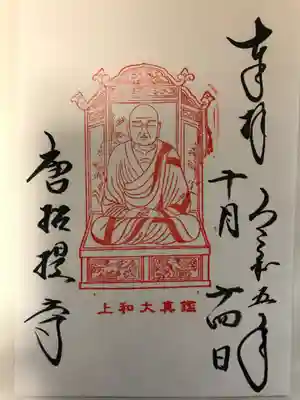 奉拝
令和五年
十月廿四日
鑑真大和上
唐招提寺